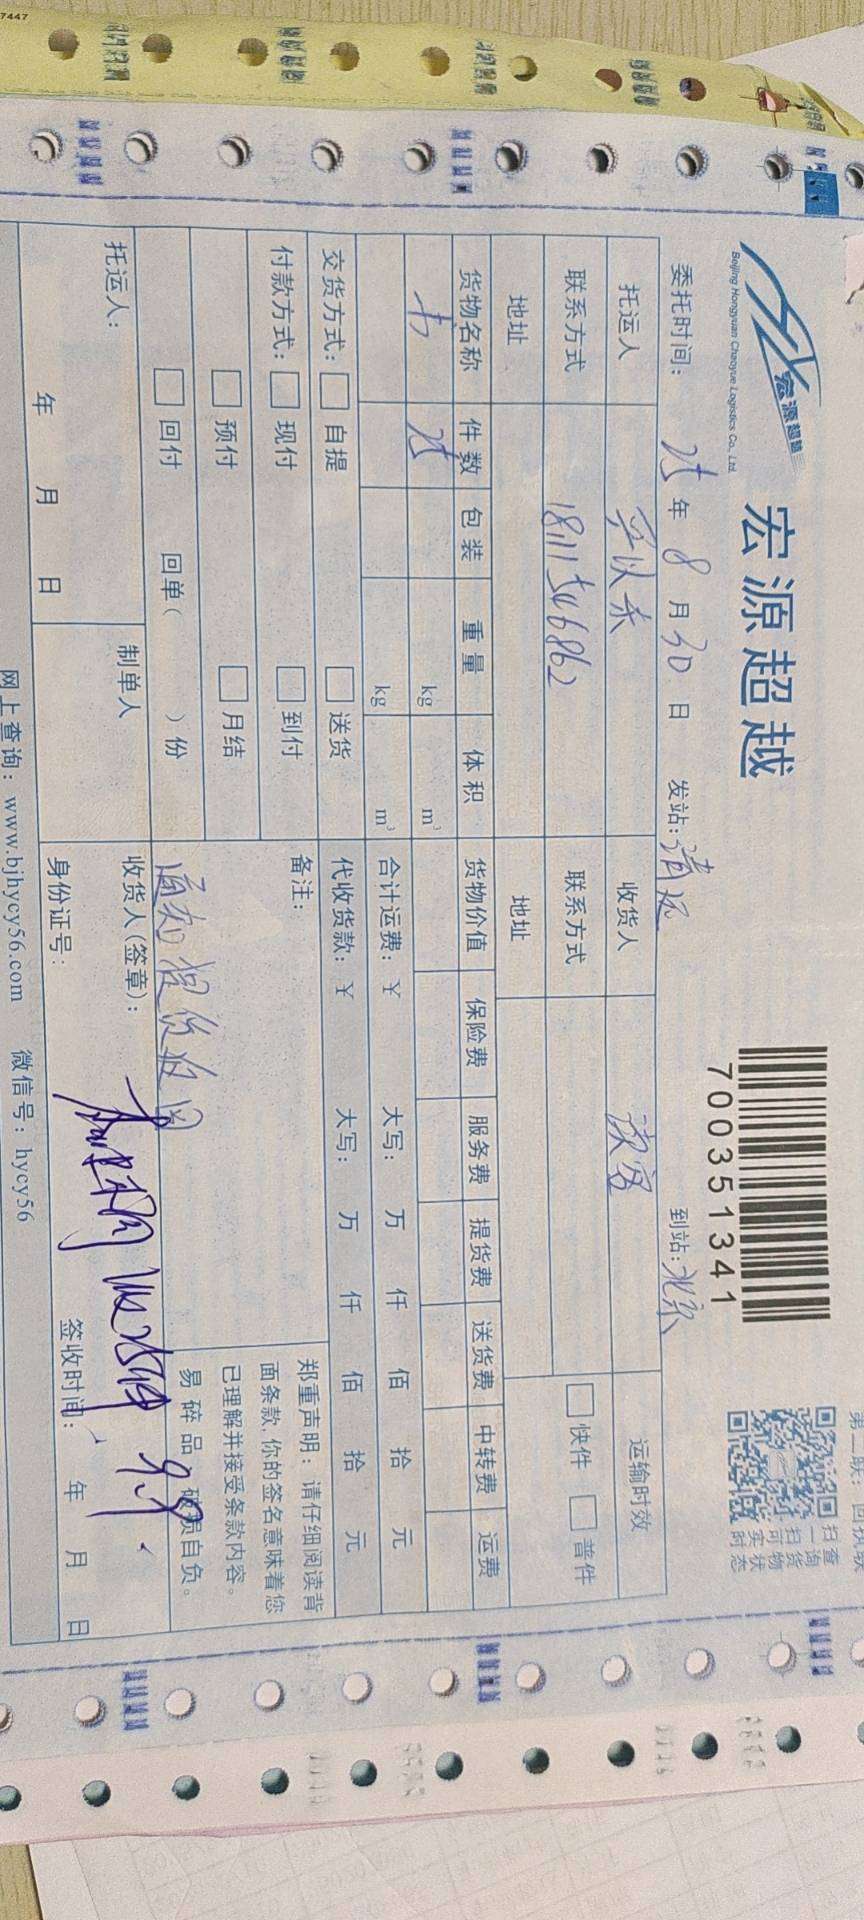 第二联：回执联
宏源超越
Beijing Hongyuan Chaoyue Logistics Co., Ltd.
宏源超越
700351341
扫一扫可实时
查询货物状态
委托时间：25年8月30日 发站：清远 到站：北京
托运人 收货人 运输时效
联系方式 18111546862 联系方式 快件 普件
地址 地址
货物名称 件数 包装 重量 体积 货物价值 保险费 服务费 提货费 送货费 中转费 运费
25 kg m³
kg m³ 合计运费：￥ 大写： 万 仟 佰 拾 元
交货方式： 自提 送货 代收货款：￥ 大写： 万 仟 佰 拾 元
付款方式： 现付 到付 备注：
预付 月结
回付 回单（ ）份
郑重声明：请仔细阅读背
面条款，你的签名意味着您
已理解并接受条款内容。
易碎品，破损自负。
托运人： 制单人 收货人(签章)：
年 月 日 身份证号： 签收时间： 年 月 日
收25件 9.9.
网上查询：www.bjhycy56.com 微信号：hycy56
7447